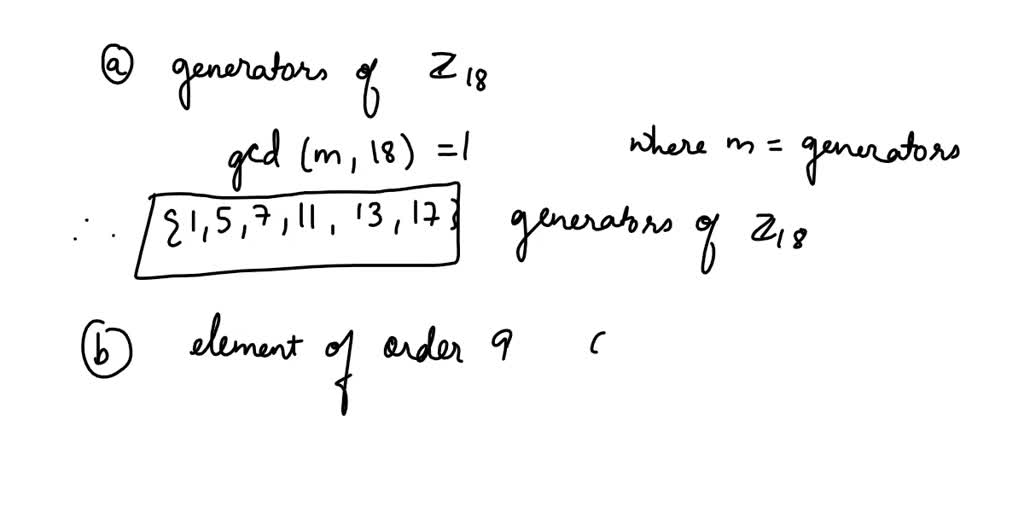 (a) generators of Z18
gcd (m, 18) = 1 where m = generators
∴ {1, 5, 7, 11, 13, 17} generators of Z18
(b) element of order 9 (